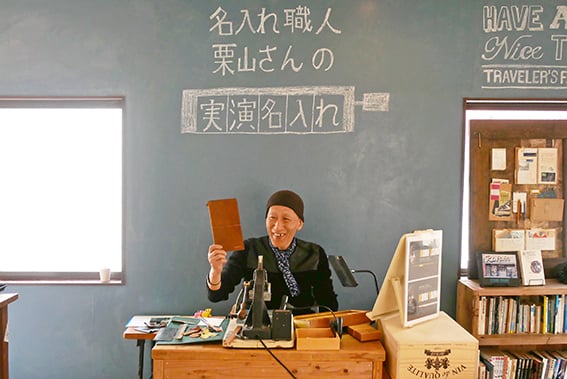 名入れ職人
栗山さんの
実演名入れ
HAVE A
Nice T
TRAVELER'S F
VIN
de QUALITÉ